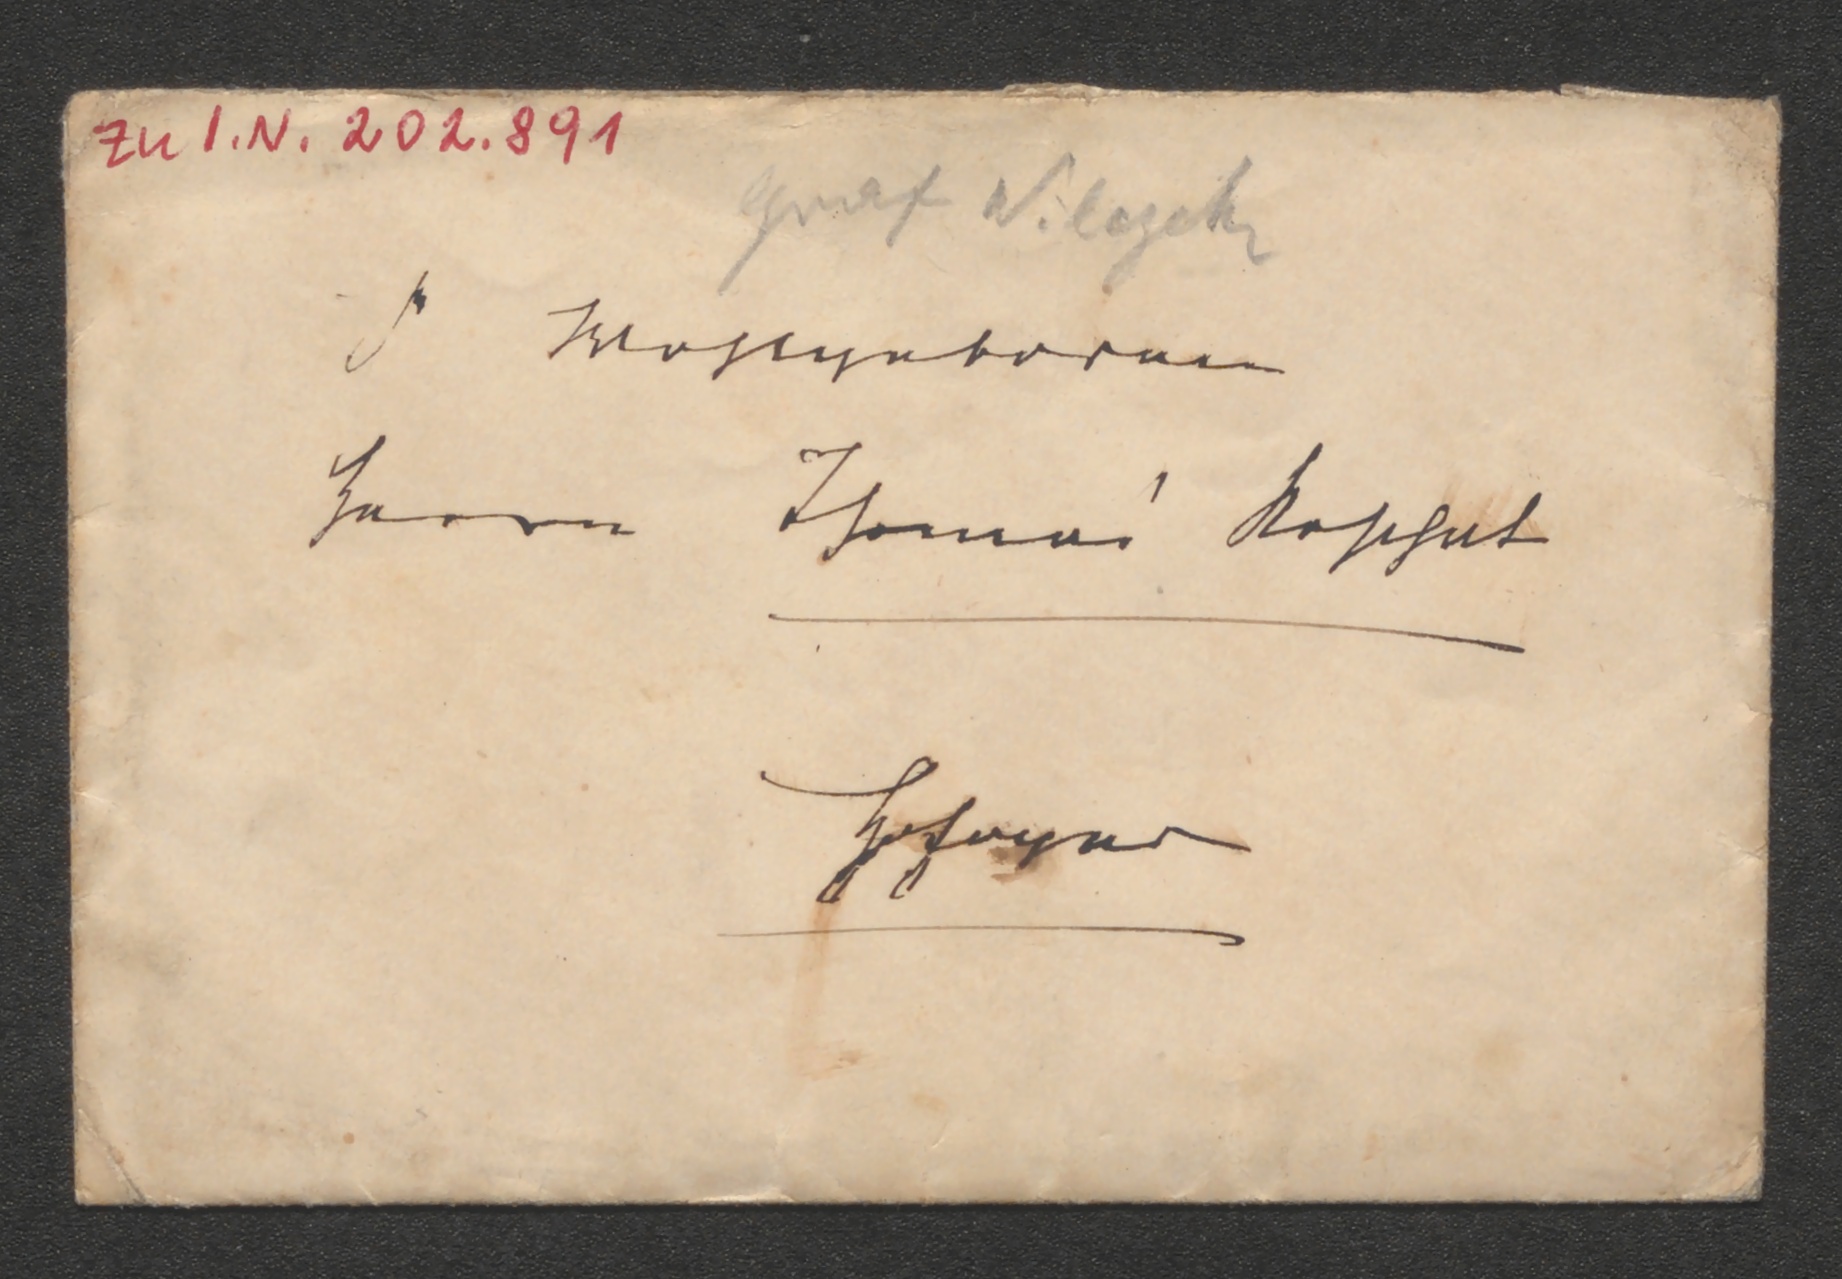 Zu I.N. 202.891
Graf Wilczek
S Wohlgeboren
Herrn Thomas Koschat